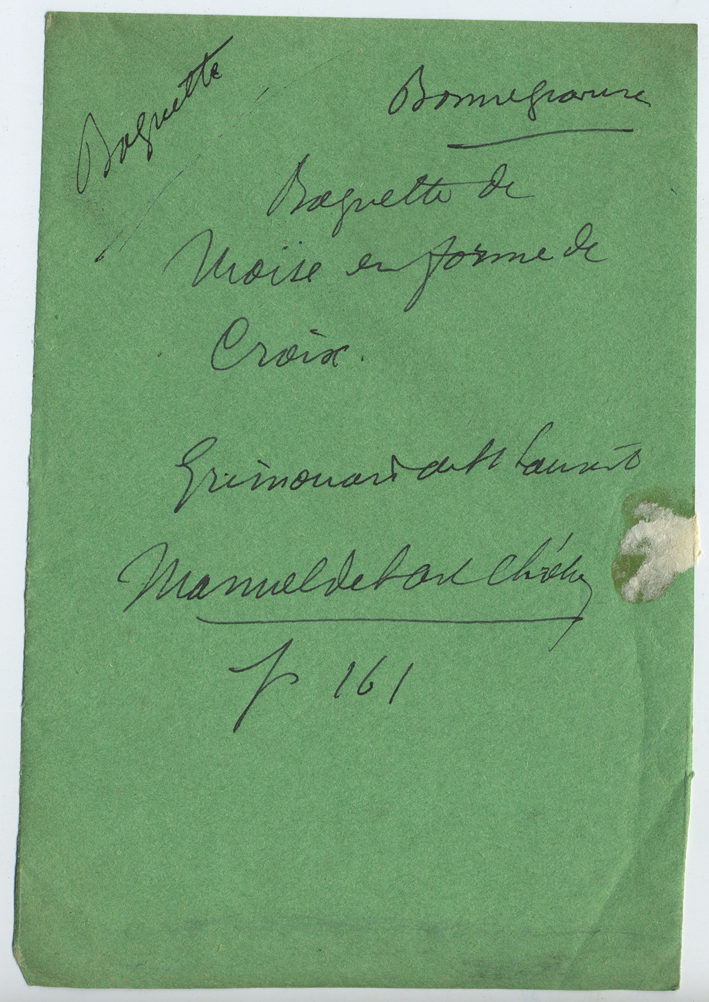 Baguette
Bonnegravure
Baguette de
Moïse en forme de
Croix.
Grimouard de St Laurent
Manuel de l'art Chrétien
p 161